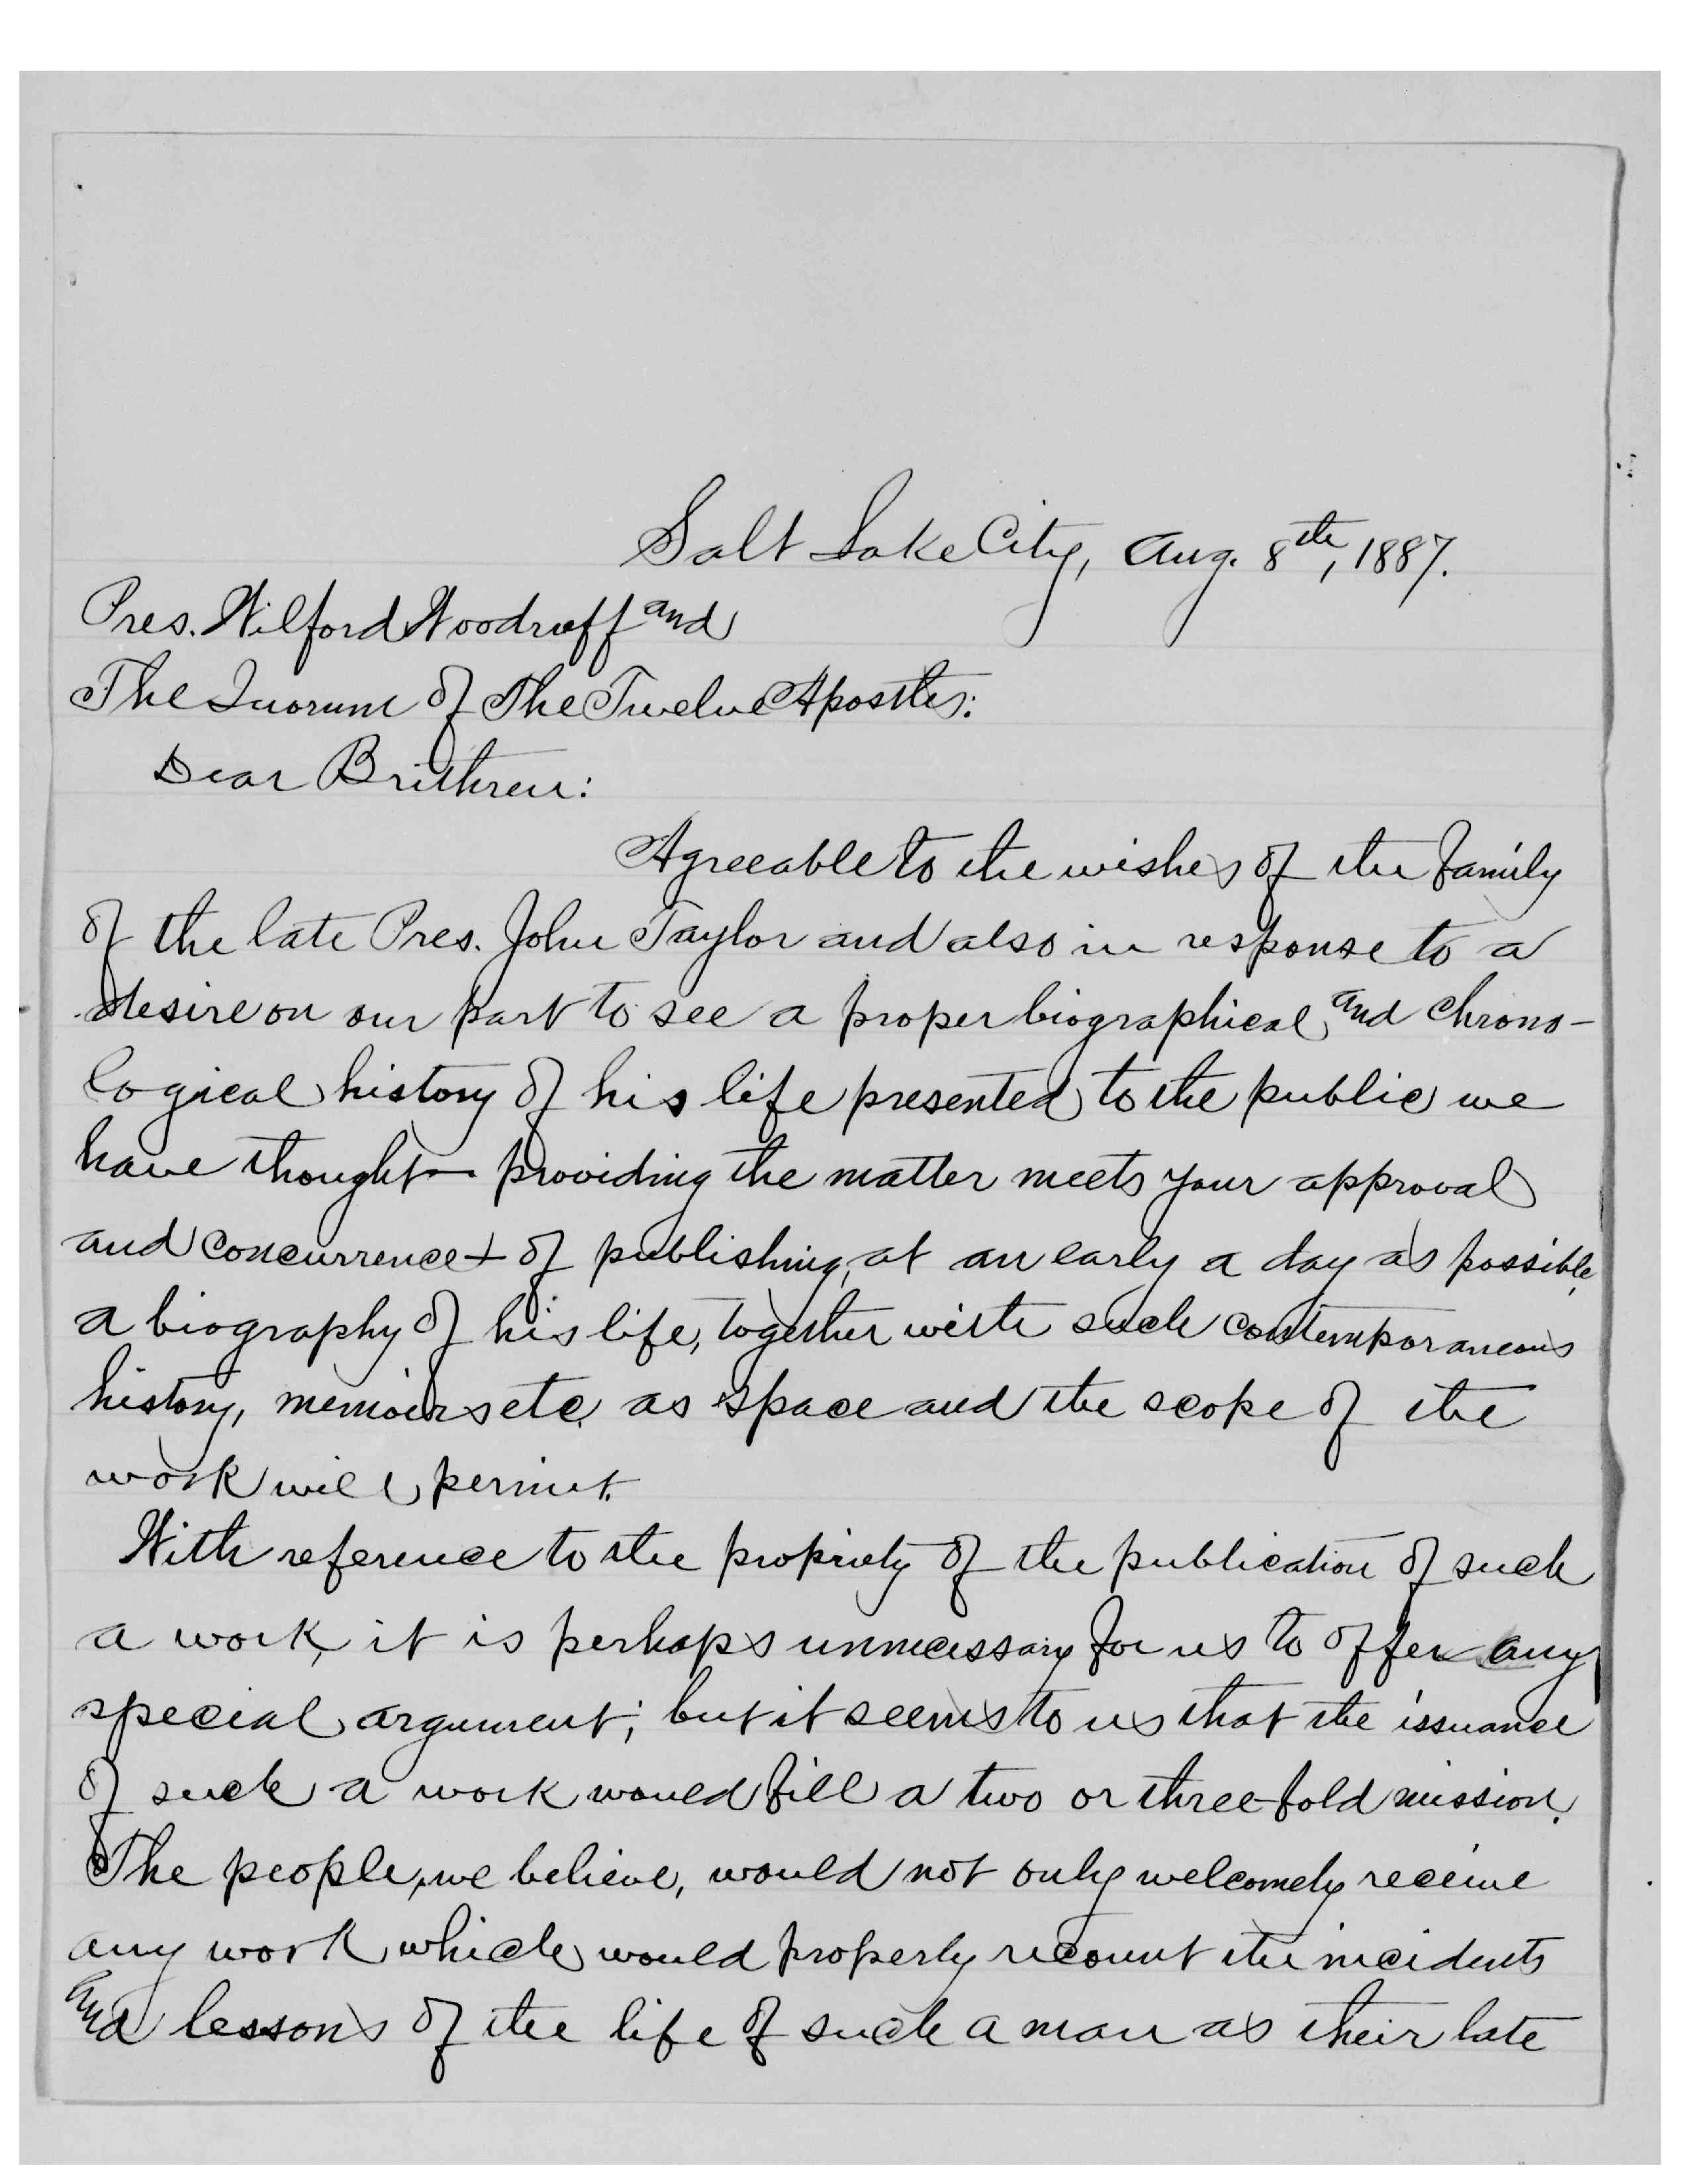 Salt Lake City, Aug. 8th, 1887.
Pres. Wilford Woodruff and
The Quorum of The Twelve Apostles:
Dear Brethren:
Agreeable to the wishes of the family
of the late Pres. John Taylor and also in response to a
desire on our part to see a proper biographical and chrono-
logical history of his life presented to the public we
have thought — providing the matter meets your approval
and concurrence — of publishing, at an early a day as possible,
a biography of his life, together with such contemporaneous
history, memoirs etc. as space and the scope of the
work will permit.
With reference to the propriety of the publication of such
a work, it is perhaps unnecessary for us to offer any
special argument; but it seems to us that the issuance
of such a work would fill a two or three-fold mission.
The people, we believe, would not only welcomely receive
any work which would properly recount the incidents
and lessons of the life of such a man as their late